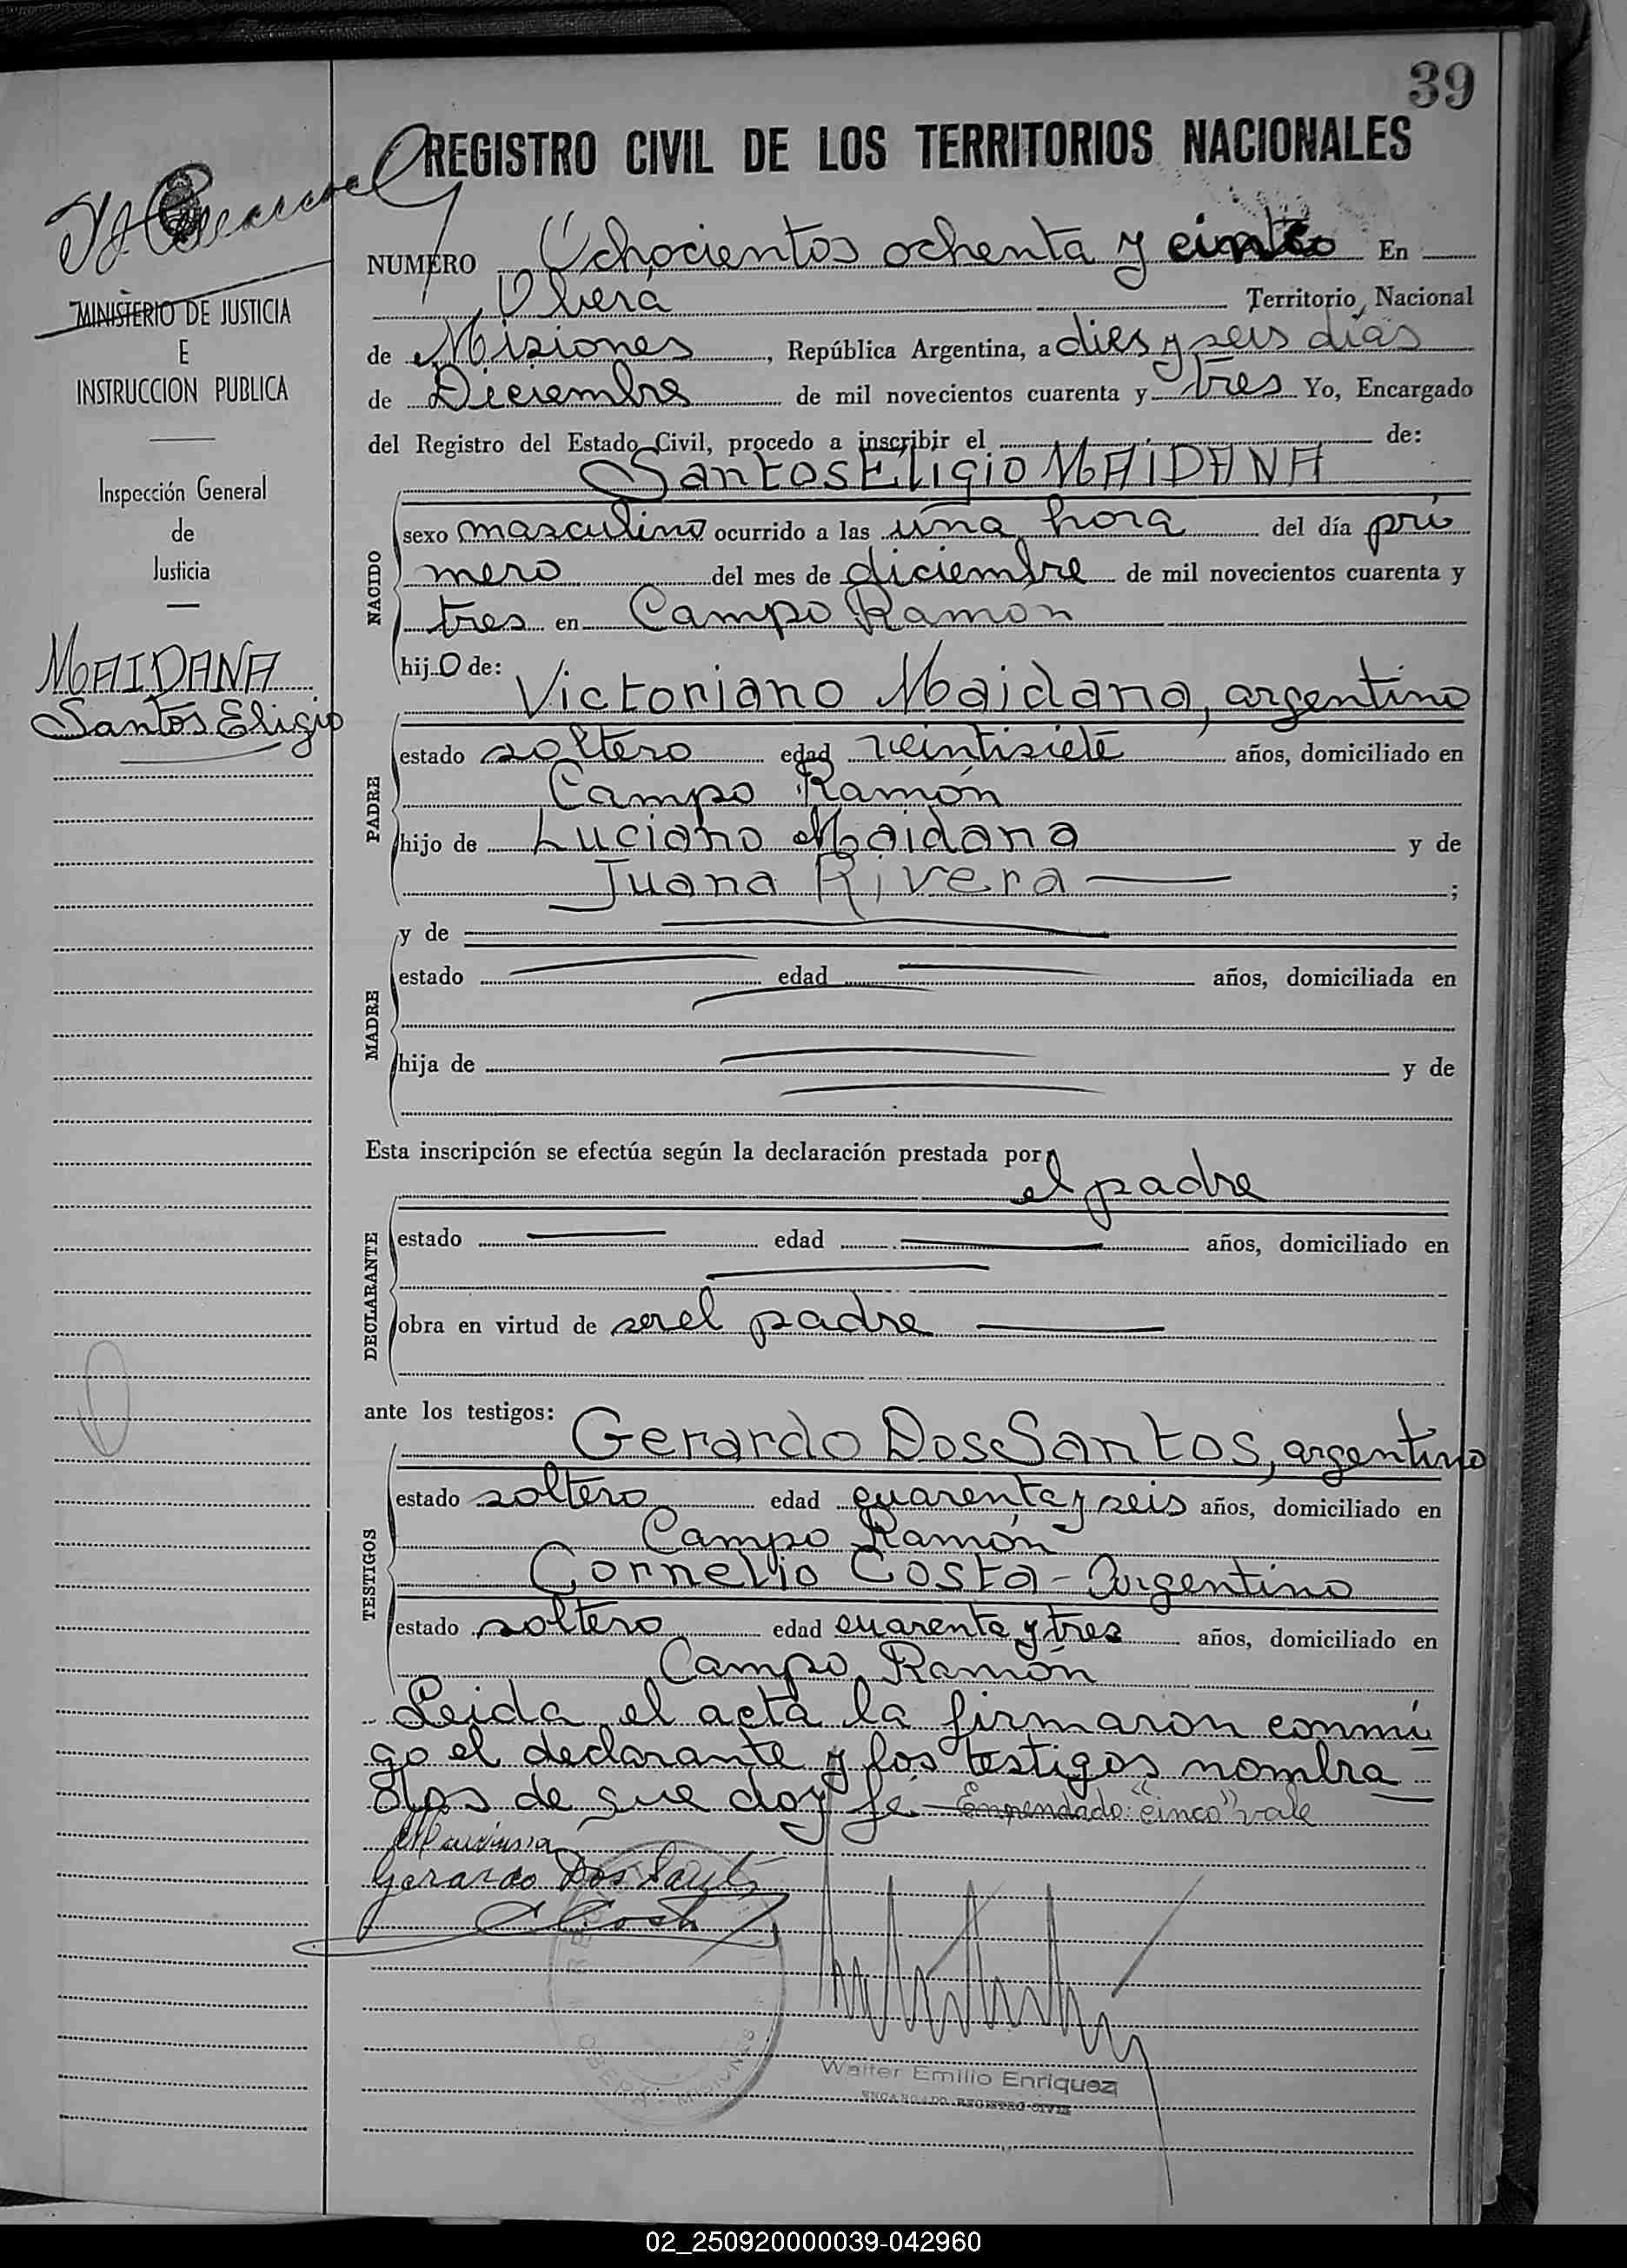 39
REGISTRO CIVIL DE LOS TERRITORIOS NACIONALES
MINISTERIO DE JUSTICIA
E
INSTRUCCION PUBLICA
Inspección General
de
Justicia
MAIDANA
Santos Eligio
NUMERO Ochocientos ochenta y cinco En
Oberá Territorio Nacional
de Misiones, República Argentina, a dies y seis dias
de Diciembre de mil novecientos cuarenta y tres Yo, Encargado
del Registro del Estado Civil, procedo a inscribir el de:
Santos Eligio MAIDANA
NACIDO
sexo masculino ocurrido a las una hora del día pri
mero del mes de diciembre de mil novecientos cuarenta y
tres en Campo Ramon
hijo de:
Victoriano Maidana, argentino
PADRE
estado soltero edad veintisiete años, domiciliado en
Campo Ramón
hijo de Luciano Maidana y de
Juana Rivera ;
MADRE
y de
estado edad años, domiciliada en
hija de y de
Esta inscripción se efectúa según la declaración prestada por
el padre
DECLARANTE
estado edad años, domiciliado en
obra en virtud de ser el padre
ante los testigos:
Gerardo Dos Santos, argentino
TESTIGOS
estado soltero edad cuarenta y seis años, domiciliado en
Campo Ramón
Cornelio Costa - Argentino
estado soltero edad cuarenta y tres años, domiciliado en
Campo Ramón
Leida el acta la firmaron conmi
go el declarante y los testigos nombra
dos de que doy fé - Enmendado: "cinco" vale
Gerardo Dos Santos
C Costa
OBERÁ - MISIONES
Walter Emilio Enriquez
ENCARGADO REGISTRO CIVIL
02_250920000039-042960